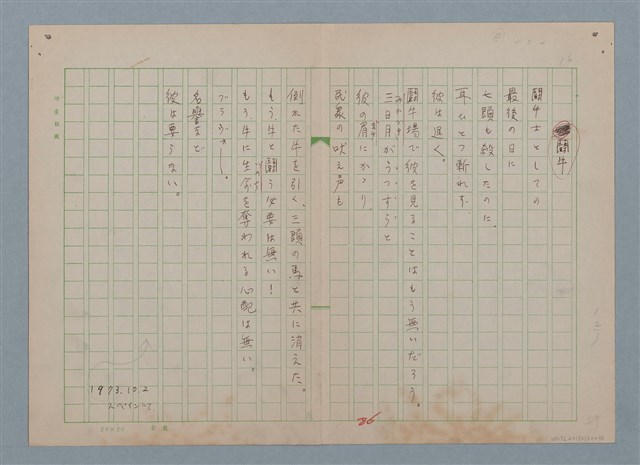 闘牛
闘牛士としての
最後の日に
七頭も殺したのに、
耳ひとつ斬れず、
彼は退く。
闘牛場で彼を見ることはもう無いだろう。
三日月がうっすらと
彼の肩にかゝり、
民衆の吠え声も
倒れた牛を引く、三頭の馬と共に消えた。
もう、牛と闘う必要は無い!
もう牛に生命を奪われる心配は無い。
名誉など
彼は要らない。
1973.10.2
スペインにて
26